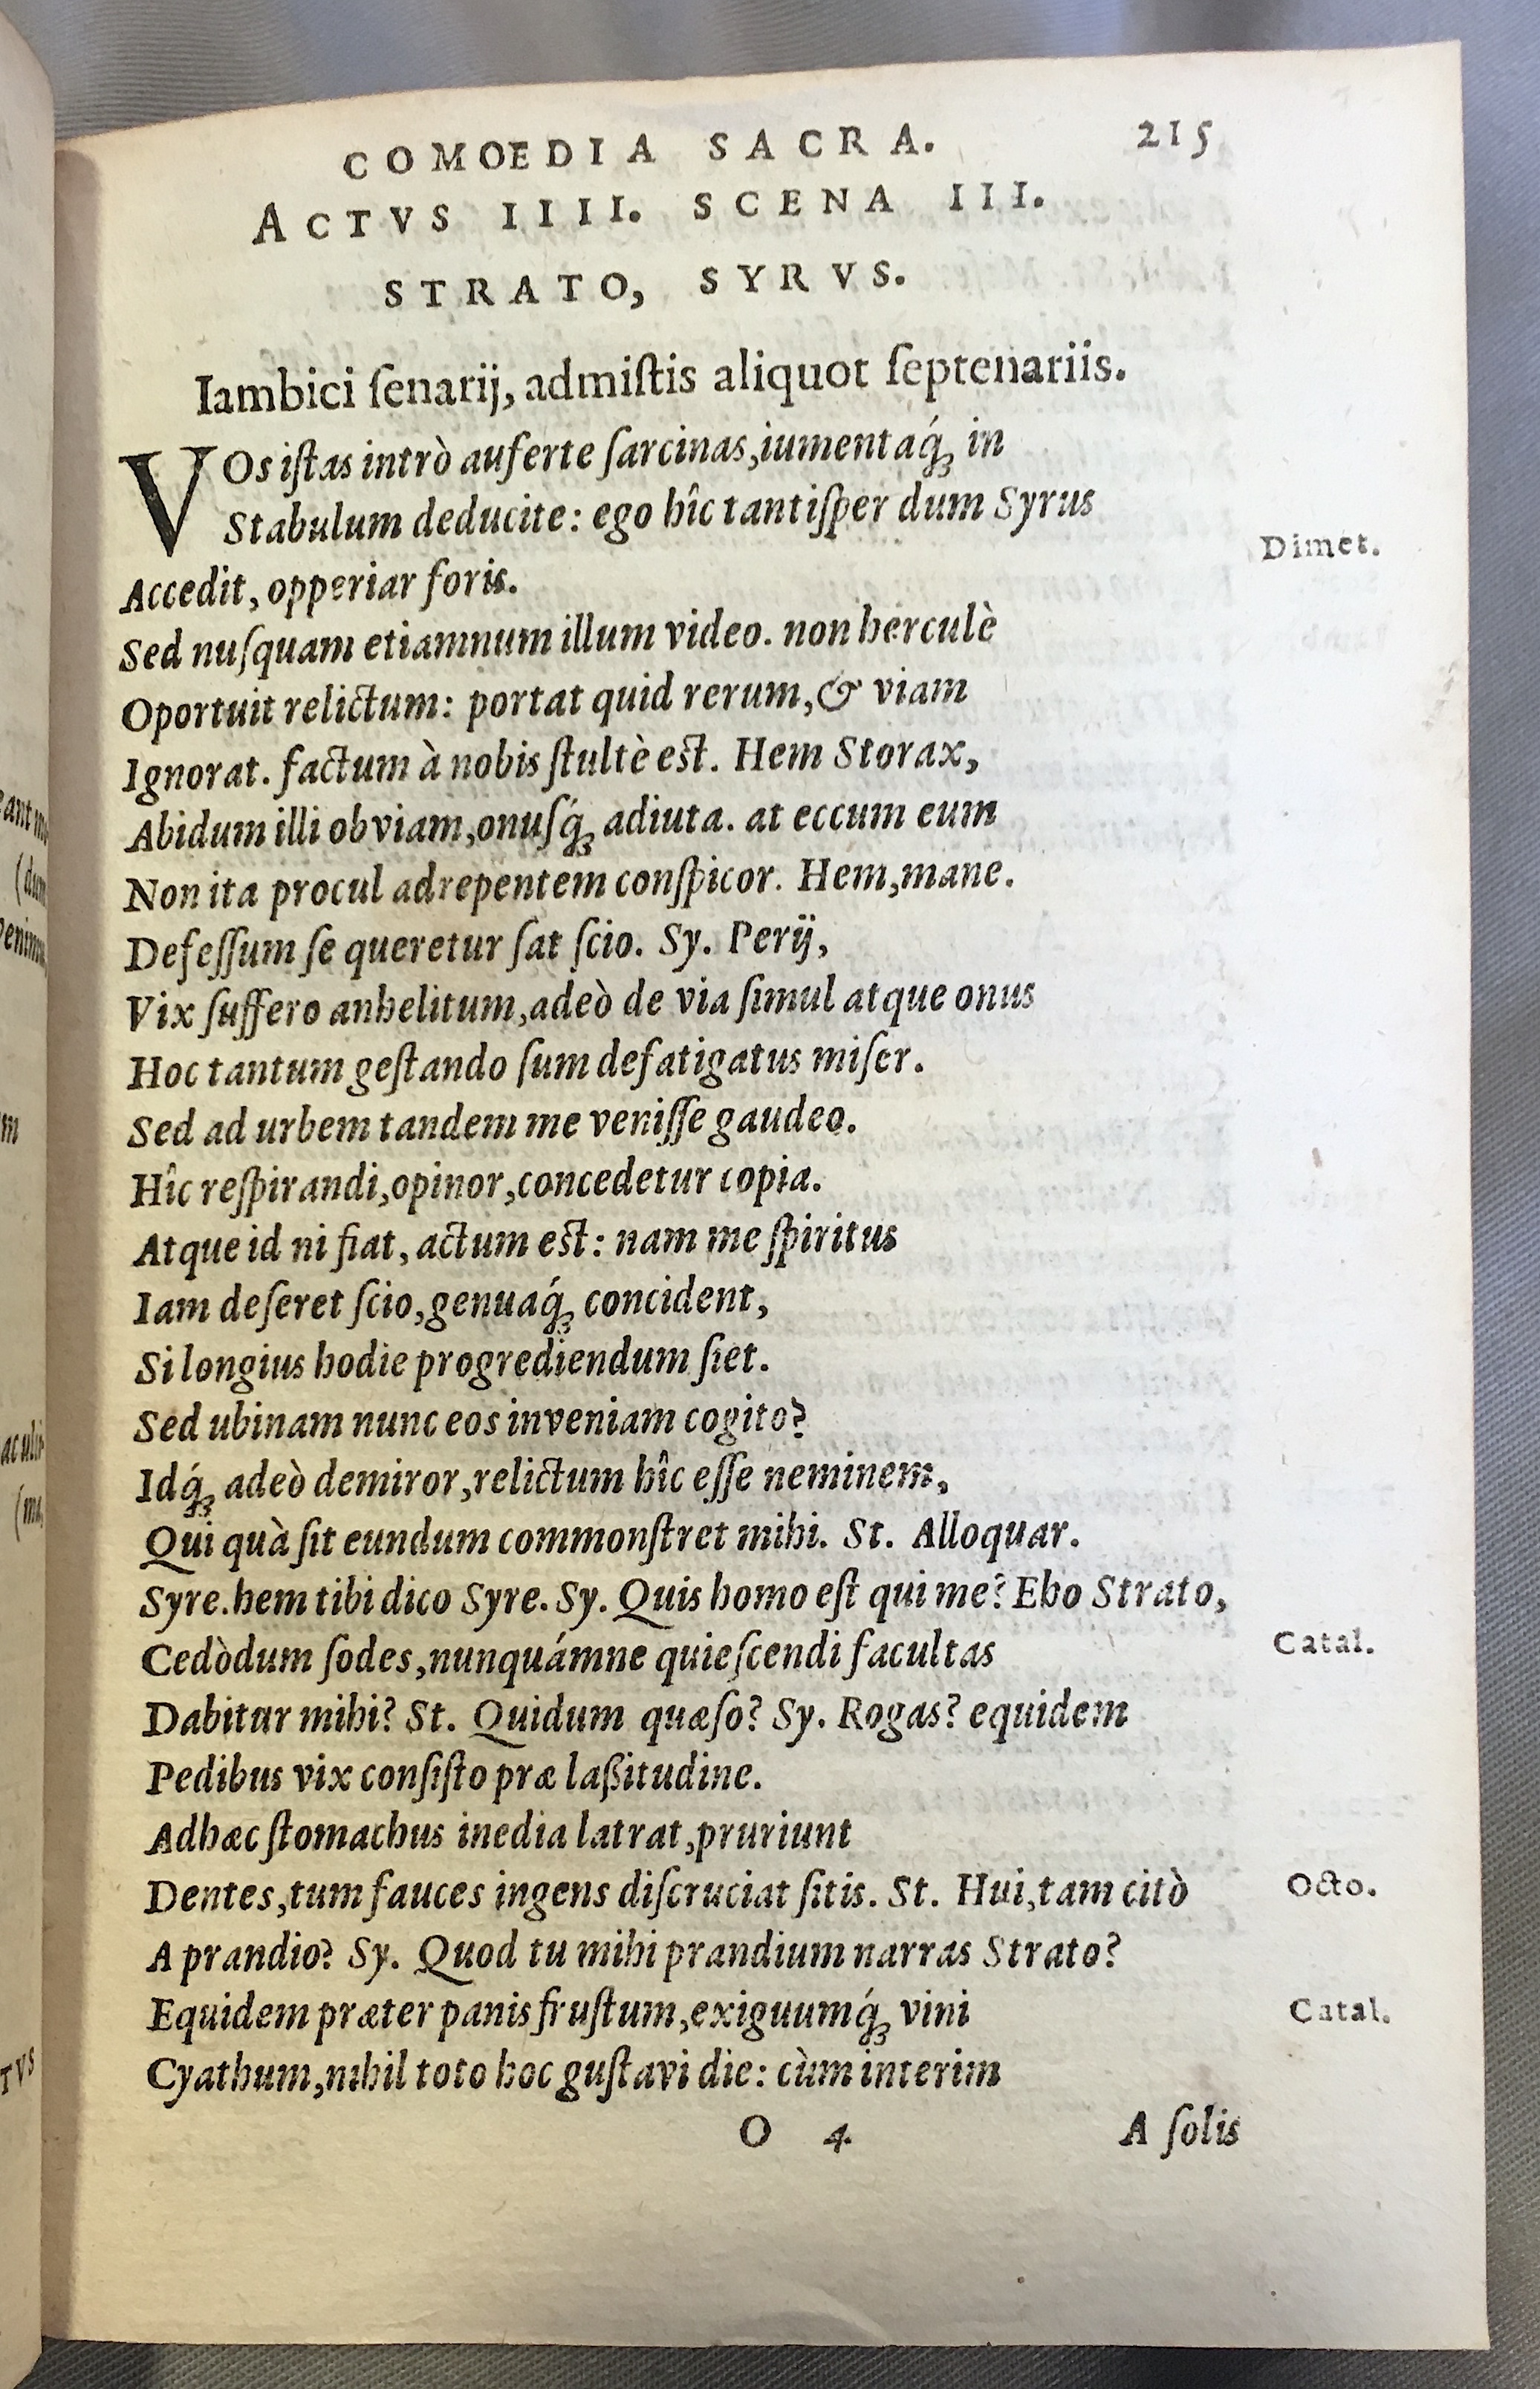 COMOEDIA SACRA. 215
ACTVS IIII. SCENA III.
STRATO, SYRVS.
Iambici ſenarij, admiſtis aliquot ſeptenariis.
VOs iſtas intrò auferte ſarcinas, iumentaq́; in
Stabulum deducite: ego hîc tantiſper dum Syrus
Dimet.
Accedit, opperiar foris.
Sed nuſquam etiamnum illum video. non herculè
Oportuit relictum: portat quid rerum, & viam
Ignorat. factum à nobis ſtultè est. Hem Storax,
Abidum illi obviam, onuſq́; adiuta. at eccum eum
Non ita procul adrepentem conſpicor. Hem, mane.
Defeſſum ſe queretur ſat ſcio. Sy. Perij,
Vix ſuffero anhelitum, adeò de via ſimul atque onus
Hoc tantum geſtando ſum defatigatus miſer.
Sed ad urbem tandem me veniſſe gaudeo.
Hîc reſpirandi, opinor, concedetur copia.
Atque id ni fiat, actum est: nam me ſpiritus
Iam deſeret ſcio, genuaq́; concident,
Si longius hodie progrediendum ſiet.
Sed ubinam nunc eos inveniam cogito?
Idq́; adeò demiror, relictum hîc eſſe neminem,
Qui quà ſit eundum commonſtret mihi. St. Alloquar.
Syre. hem tibi dico Syre. Sy. Quis homo eſt qui me? Eho Strato,
Cedòdum ſodes, nunquámne quieſcendi facultas
Catal.
Dabitur mihi? St. Quidum quæſo? Sy. Rogas? equidem
Pedibus vix conſiſto præ laßitudine.
Adhæc ſtomachus inedia latrat, pruriunt
Dentes, tum fauces ingens diſcruciat ſitis. St. Hui, tam citò
Octo.
A prandio? Sy. Quod tu mihi prandium narras Strato?
Equidem præter panis fruſtum, exiguumq́; vini
Catal.
Cyathum, nihil toto hoc guſtavi die: cùm interim
O 4 A ſolis